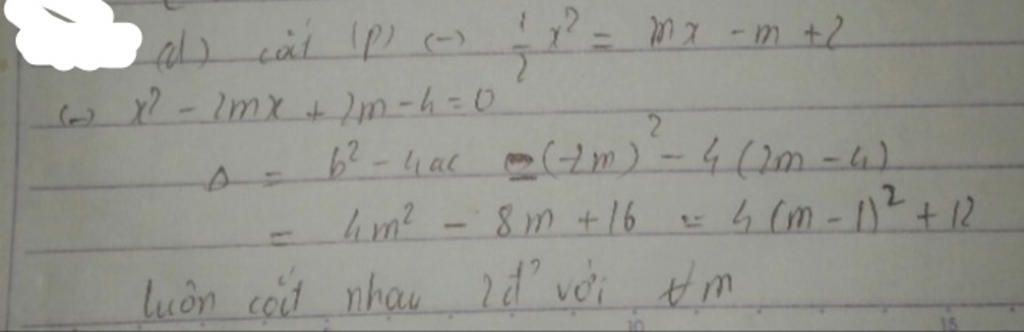 (d) cắt (P) (-) 1/2 x² = mx - m + 2
(-) x² - 2mx + 2m - 4 = 0
Δ = b² - 4ac = (-2m)² - 4(2m - 4)
= 4m² - 8m + 16 = 4(m - 1)² + 12
luôn cắt nhau 2đ' với ∀m
10 15